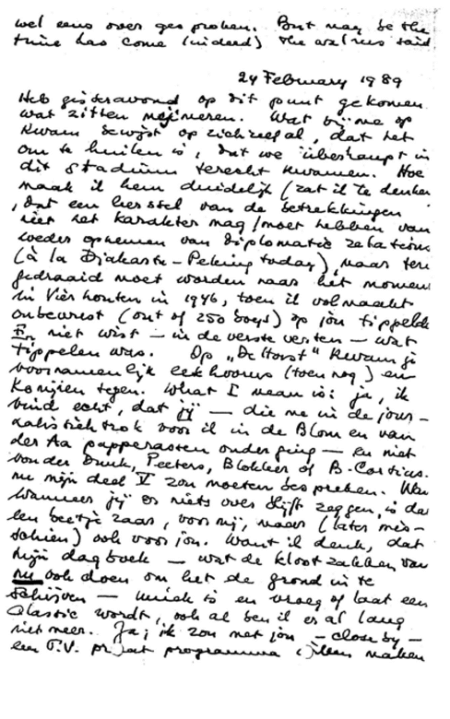 wel eens over gesproken. But may be the
time has come (indeed) the walrus said
24 February 1989
Heb gisteravond op dit punt gekomen
wat zitten mijmeren. Wat bij me op
kwam bewijst op zichzelf al, dat het
om te huilen is, dat we überhaupt in
dit stadium terecht kwamen. Hoe
maak ik hem duidelijk (zat ik te denken
, dat een herstel van de betrekkingen
niet het karakter mag/moet hebben van
weder opnemen van diplomatic relations
(à la Djakarta-Peking today), maar terug
gedraaid moet worden naar het moment
in Vierhouten in 1946, toen ik volmaakt
onbewust (out of 250 boys) op jou tippelde
En niet wist - in de verste verten - wat
tippelen was. Op "De Horst" kwam je
voornamelijk eekhoorns (toen nog) en
konijnen tegen. What I mean is: ja, ik
vind echt, dat jij - die me in de jour-
nalistiek trok voor ik in de Blom en van
der Aa papperasten onderging - en niet
von der Dunk, Peeters, Blokker of B-Corstius.
nu mijn deel V zou moeten bespreken.
wanneer jij er niets over blijft zeggen, is dat
een beetje raar, voor mij, maar (later mis-
schien) ook voor jou. Want ik denk, dat
mijn dagboek - wat de klootzakken van
nu ook doen om het de grond in te
schrijven - uniek is en vroeg of laat een
Classic wordt, ook al ben ik er al lang
niet meer. Ja; ik zou met jou - close by -
een T.V. praat programma willen maken